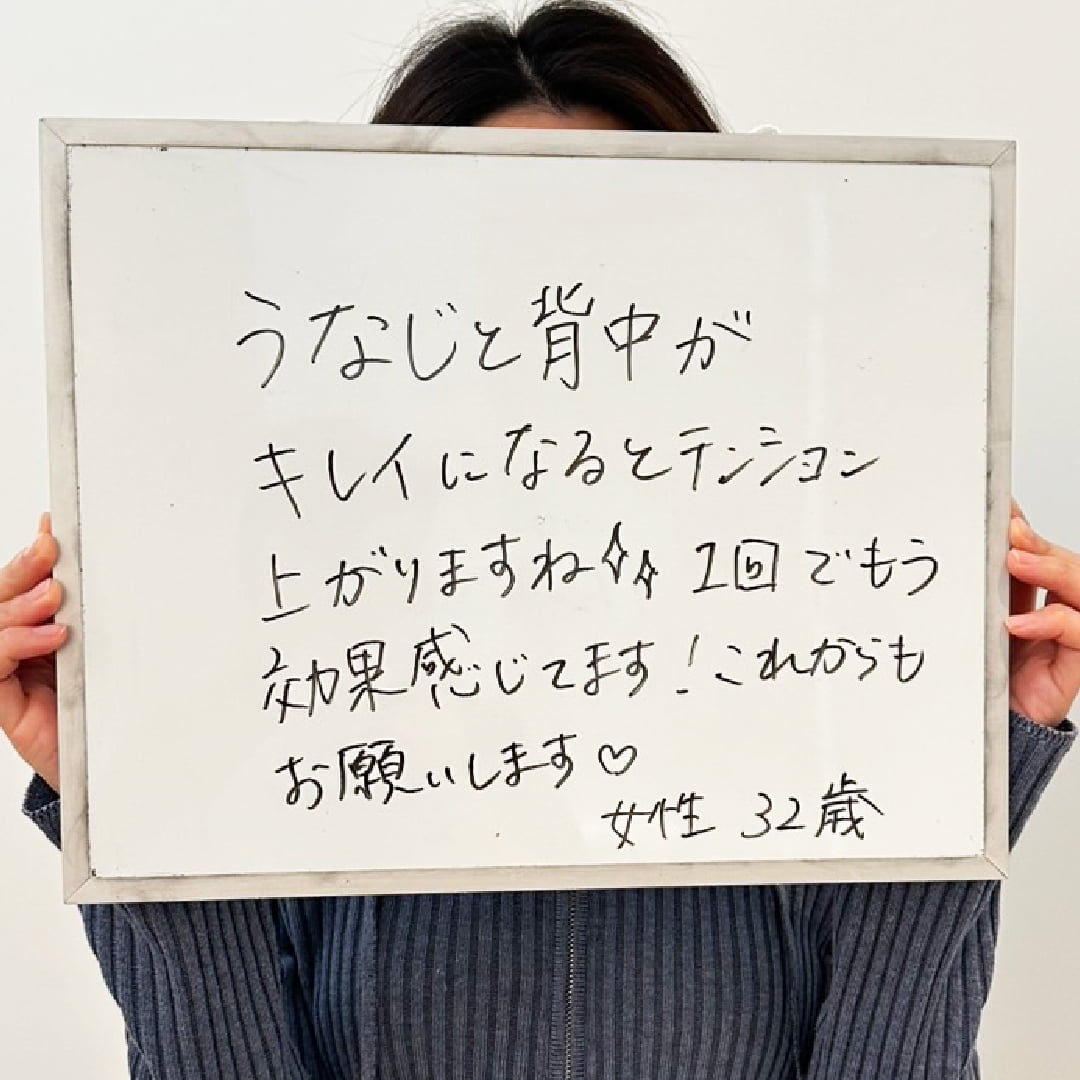 うなじと背中が
キレイになるとテンション
上がりますね✨ 1回でもう
効果感じてます！これからも
お願いします♡
女性 32歳